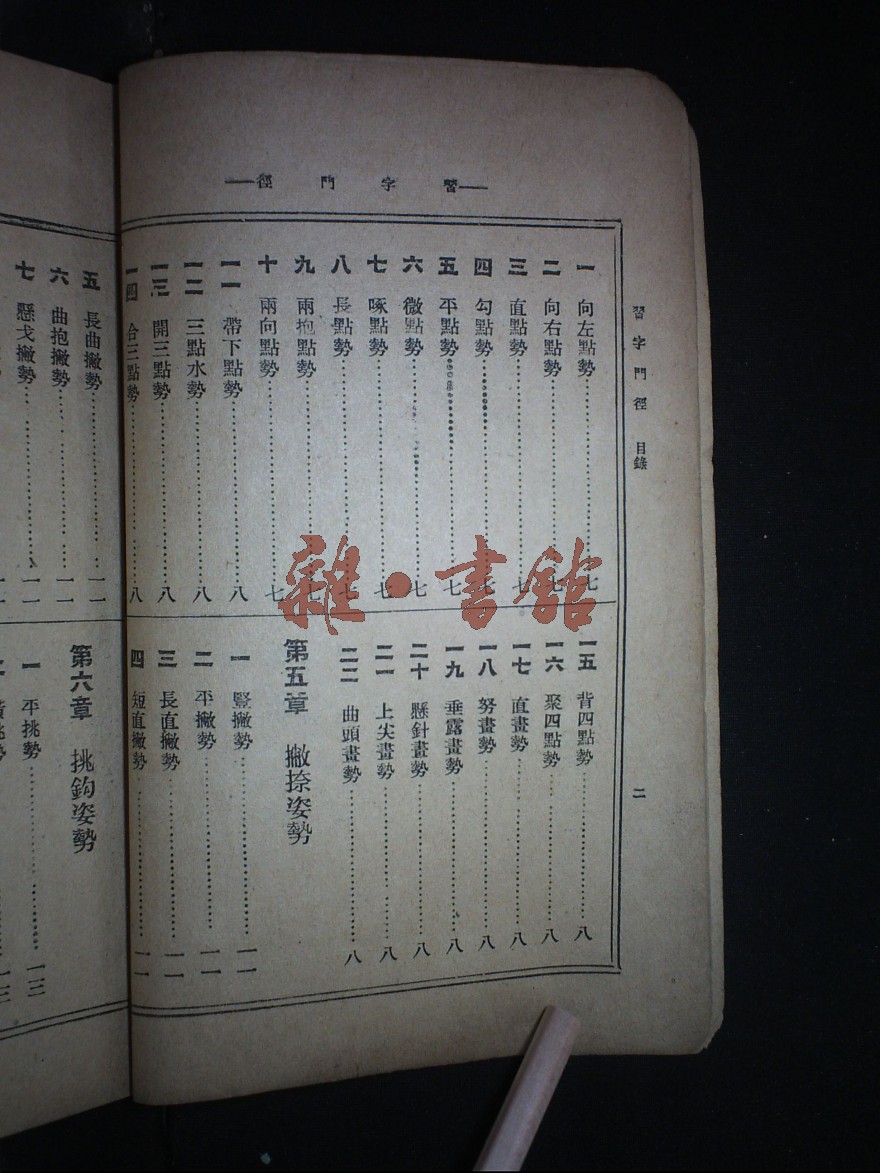 習字門徑
習字門徑 目錄
二
一 向左點勢 七
二 向右點勢 七
三 直點勢 七
四 勾點勢 七
五 平點勢 七
六 微點勢 七
七 啄點勢 七
八 長點勢 七
九 兩抱點勢 七
十 兩向點勢 七
一一 帶下點勢 八
一二 三點水勢 八
一三 開三點勢 八
一四 合三點勢 八
一五 背四點勢 八
一六 聚四點勢 八
一七 直畫勢 八
一八 努畫勢 八
一九 垂露畫勢 八
二十 懸針畫勢 八
二一 上尖畫勢 八
二二 曲頭畫勢 八
第五章 撇捺姿勢
一 豎撇勢 一一
二 平撇勢 一一
三 長直撇勢 一一
四 短直撇勢 一一
五 長曲撇勢 一一
六 曲抱撇勢 一一
七 懸戈撇勢 一一
第六章 挑鈎姿勢
一 平挑勢 一三
雜·書館